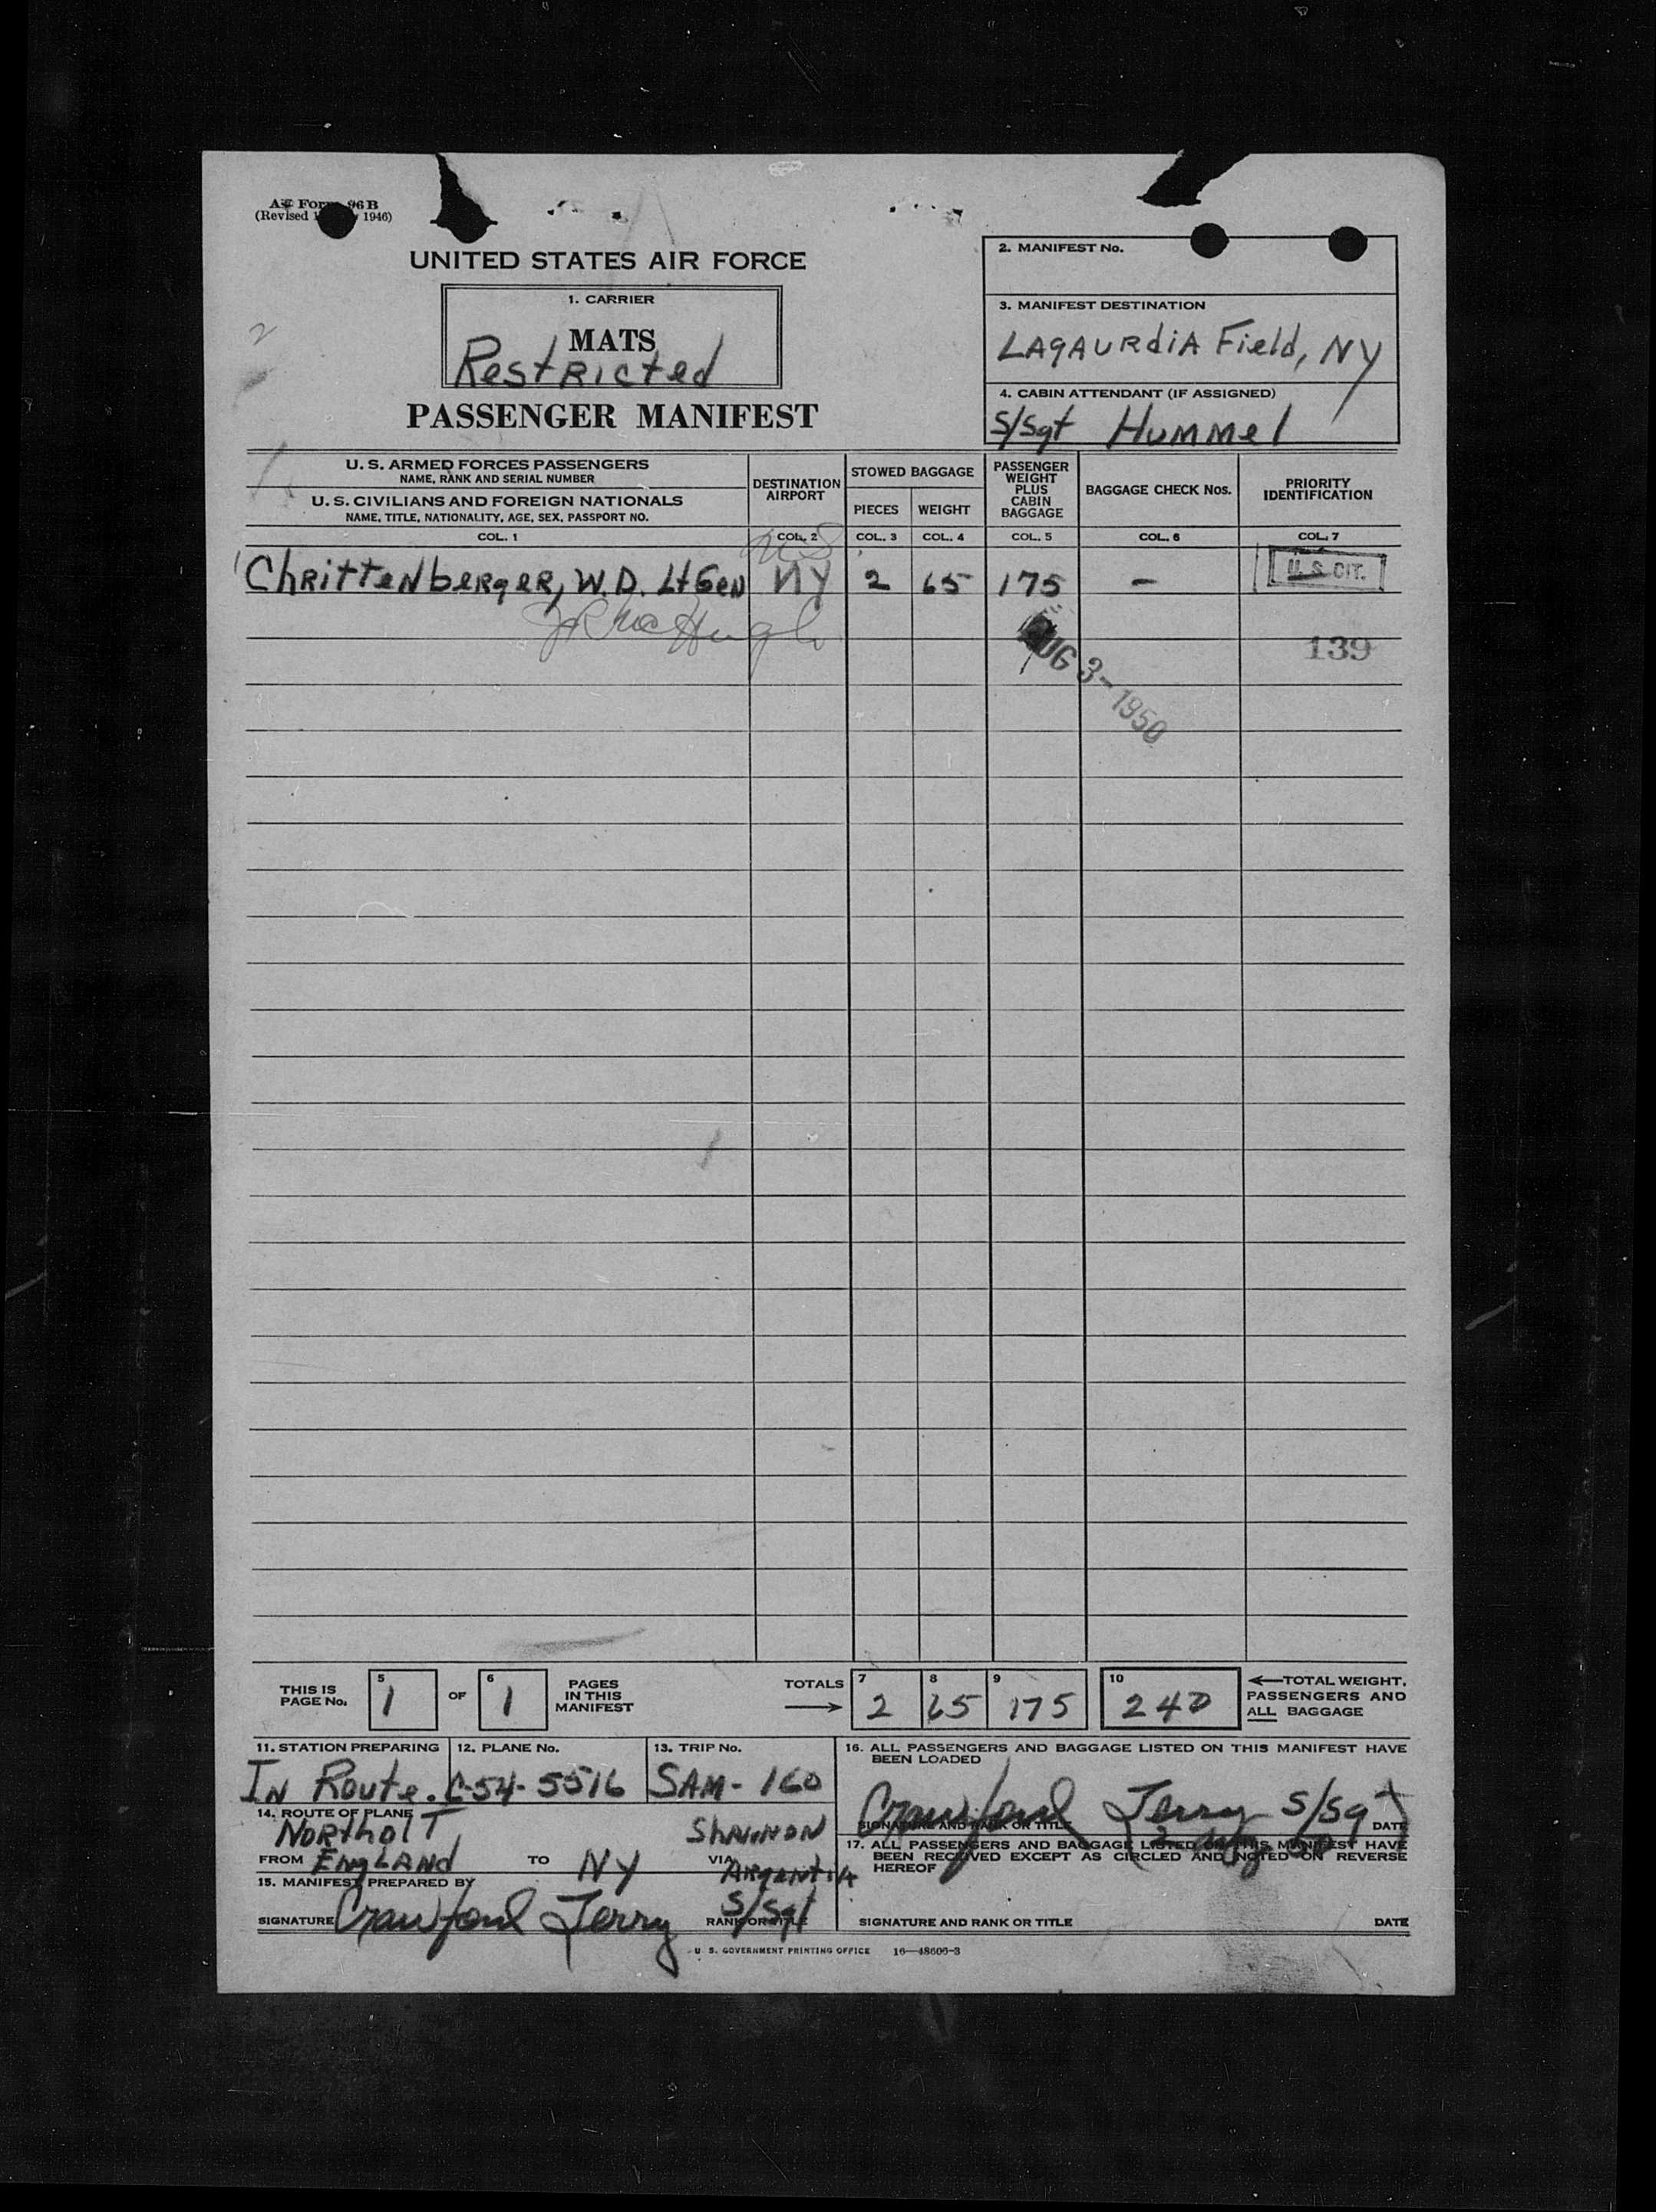 (Revised 1946)
UNITED STATES AIR FORCE
1. CARRIER
MATS
Restricted
PASSENGER MANIFEST
2. MANIFEST No.
3. MANIFEST DESTINATION
LAgAURdiA Field, NY
4. CABIN ATTENDANT (IF ASSIGNED)
S/Sgt Hummel
U. S. ARMED FORCES PASSENGERS
NAME, RANK AND SERIAL NUMBER
U. S. CIVILIANS AND FOREIGN NATIONALS
NAME, TITLE, NATIONALITY, AGE, SEX, PASSPORT NO.
DESTINATION
AIRPORT
STOWED BAGGAGE
PIECES WEIGHT
PASSENGER
WEIGHT
PLUS
CABIN
BAGGAGE
BAGGAGE CHECK Nos.
PRIORITY
IDENTIFICATION
COL. 1 COL. 2 COL. 3 COL. 4 COL. 5 COL. 6 COL. 7
US
1 Chrittenberger, W.D. Lt Gen NY 2 65 175 – U. S. CIT.
139
AUG 3-1950
THIS IS
PAGE No.
5
1
OF
6
1
PAGES
IN THIS
MANIFEST
TOTALS
7
2
8
65
9
175
10
240
TOTAL WEIGHT,
PASSENGERS AND
ALL BAGGAGE
11. STATION PREPARING
In Route.
12. PLANE No.
C-54-5516
13. TRIP No.
SAM-160
14. ROUTE OF PLANE
FROM Northolt England TO NY VIA Shannon Argentia
15. MANIFEST PREPARED BY
SIGNATURE Crawford Jerry RANK OR TITLE S/Sgt
16. ALL PASSENGERS AND BAGGAGE LISTED ON THIS MANIFEST HAVE
BEEN LOADED
Crawford Jerry S/Sgt
SIGNATURE AND RANK OR TITLE DATE
17. ALL PASSENGERS AND BAGGAGE LISTED ON THIS MANIFEST HAVE
BEEN RECEIVED EXCEPT AS CIRCLED AND NOTED ON REVERSE
HEREOF
SIGNATURE AND RANK OR TITLE DATE
U. S. GOVERNMENT PRINTING OFFICE 16—48606-3